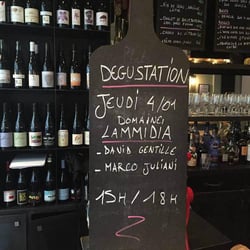 DEGUSTATION
JEUDI 4/01
DOMAINE:
LAMMIDIA
- DAVID GENTILE
- MARCO JULIANI
15H / 18H